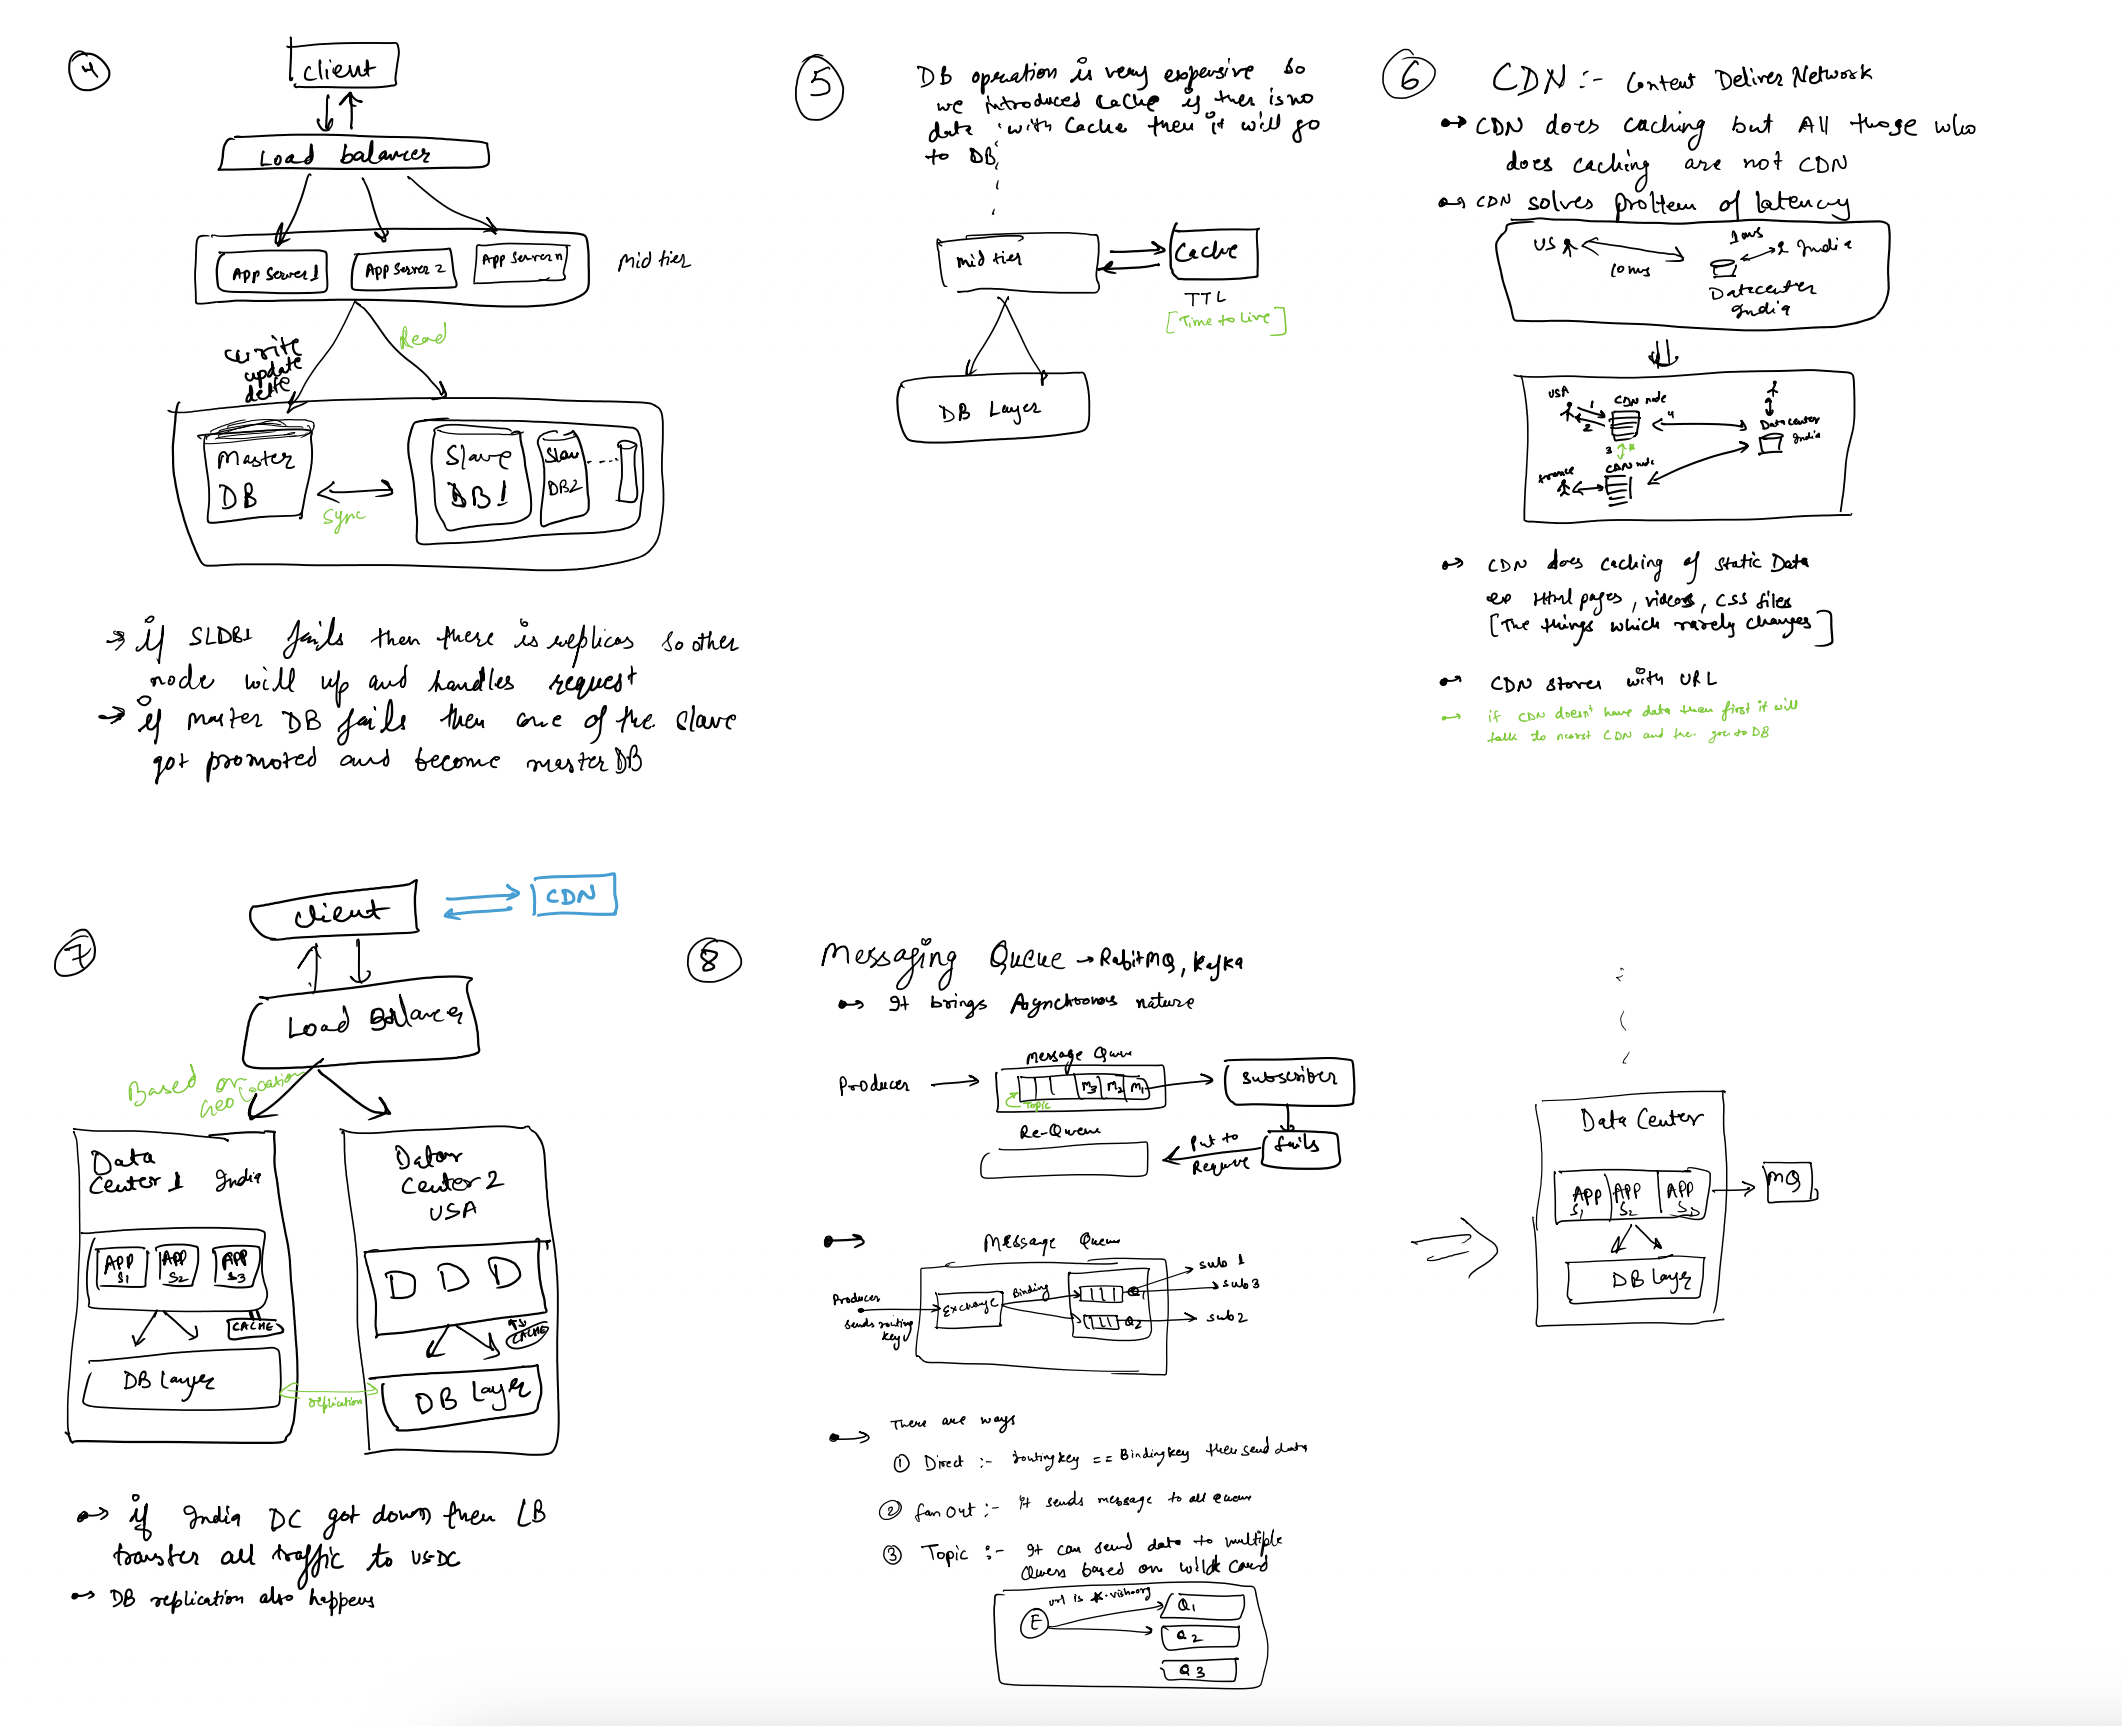 4
client
Load balancer
App Server 1
App Server 2
App Server n
Mid tier
write
update
Read
Master
DB
Sync
Slave
DB1
Slav
DB2
→ if SLDB1 fails then there is replicas so other
node will up and handles request
→ if master DB fails then one of the slave
got promoted and become master DB
5
DB operation is very expensive so
we introduced cache if ther is no
data with Cache then it will go
to DB
mid tier
Cache
TTL
[Time to Live]
DB Layer
6
CDN :- Content Deliver Network
→ CDN does caching but All those who
does caching are not CDN
→ CDN solves problem of latency
US
10ms
1ms
India
Datacenter
India
USA
1
2
CDN node
4
Datacenter
India
3
CDN node
france
→ CDN does caching of static Data
Html pages, videos, CSS files
[The things which rarely changes]
→ CDN stores with URL
→ if CDN doesn't have data then first it will
talk to nearst CDN and then goes to DB
7
client
CDN
Load Balancer
Based on
Geo Location
Data
Center 1 India
APP S1
APP S2
APP S3
CACHE
DB Layer
replication
Center 2
USA
CACHE
DB Layer
→ if India DC got down then LB
transfer all traffic to US-DC
→ DB replication also happens
8
Messaging Queue → RabitMQ, Kafka
→ It brings Asynchronous nature
Producer
Message Queue
M3 M2 M1
Topic
Subscriber
fails
Put to
Requeue
Re-Queue
→ Message Queue
Producer
sends routing
key
Exchange
Binding
Q1
Q2
sub 1
sub 3
sub 2
→ There are ways
① Direct :- routingkey == Bindingkey then send data
② fan Out :- it sends message to all queue
③ Topic :- It can send data to multiple
based on wild card
E
Q1
Q2
Q3
Data Center
APP S1
APP S2
APP
MQ
DB Layer